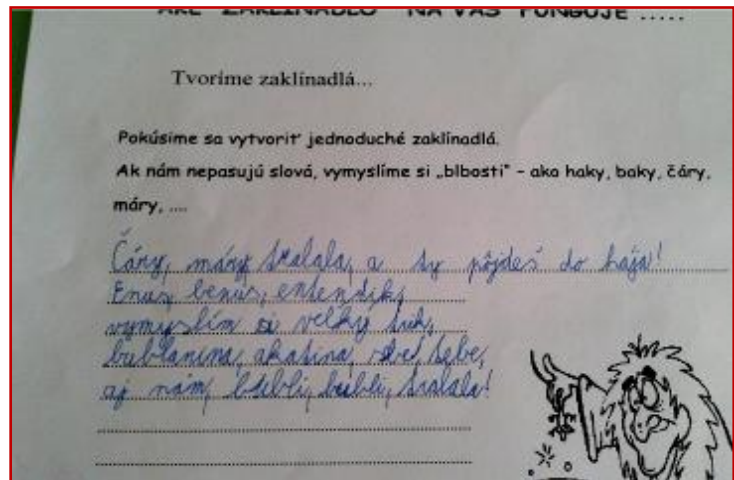 AKÉ ZAKLÍNADLO NA VÁS FUNGUJE .....
Tvoríme zaklínadlá...
Pokúsime sa vytvoriť jednoduché zaklínadlá.
Ak nám nepasujú slová, vymyslíme si „blbosti" - ako haky, baky, čáry,
máry, ....
Čáry, máry tralala, a ty pôjdeš do hája!
Enus, benus, entendík,
vymyslím si velký trik,
bublanina, akatina, tebe,
aj nám, bubli, bubli, tralala!